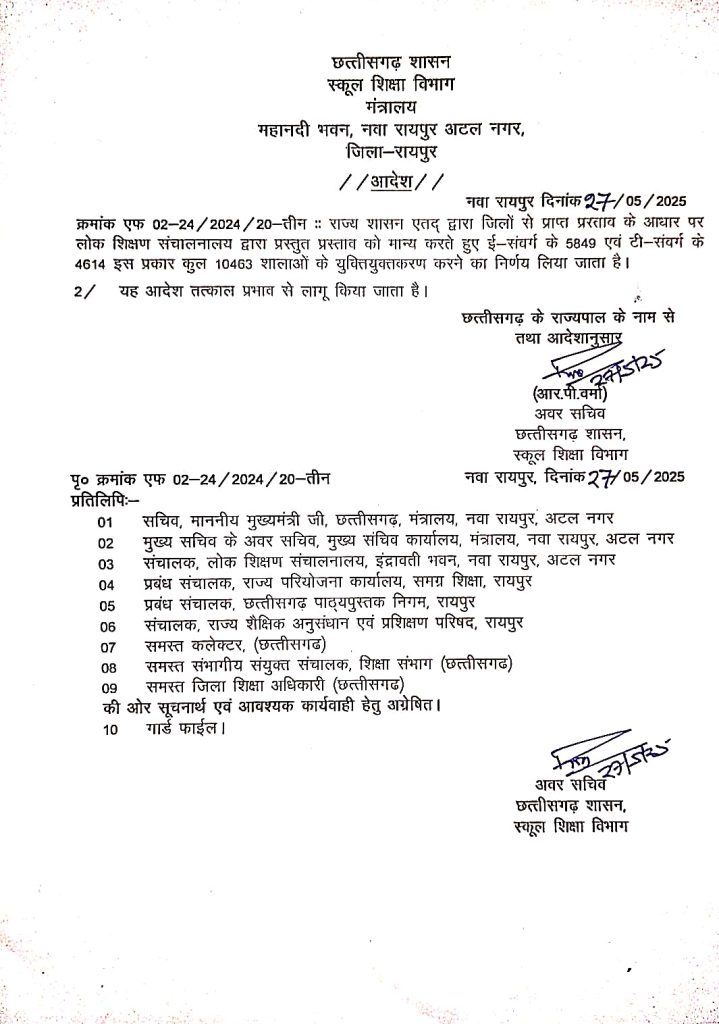 छत्तीसगढ़ शासन
स्कूल शिक्षा विभाग
मंत्रालय
महानदी भवन, नवा रायपुर अटल नगर,
जिला–रायपुर
//आदेश//
नवा रायपुर दिनांक 27/05/2025
क्रमांक एफ 02–24/2024/20–तीन :: राज्य शासन एतद् द्वारा जिलों से प्राप्त प्रस्ताव के आधार पर
लोक शिक्षण संचालनालय द्वारा प्रस्तुत प्रस्ताव को मान्य करते हुए ई–संवर्ग के 5849 एवं टी–संवर्ग के
4614 इस प्रकार कुल 10463 शालाओं के युक्तियुक्तकरण करने का निर्णय लिया जाता है।
2/ यह आदेश तत्काल प्रभाव से लागू किया जाता है।
छत्तीसगढ़ के राज्यपाल के नाम से
तथा आदेशानुसार
27/5/25
(आर.पी.वर्मा)
अवर सचिव
छत्तीसगढ़ शासन,
स्कूल शिक्षा विभाग
पृ० क्रमांक एफ 02–24/2024/20–तीन नवा रायपुर, दिनांक 27/05/2025
प्रतिलिपिः–
01 सचिव, माननीय मुख्यमंत्री जी, छत्तीसगढ़, मंत्रालय, नवा रायपुर, अटल नगर
02 मुख्य सचिव के अवर सचिव, मुख्य सचिव कार्यालय, मंत्रालय, नवा रायपुर, अटल नगर
03 संचालक, लोक शिक्षण संचालनालय, इंद्रावती भवन, नवा रायपुर, अटल नगर
04 प्रबंध संचालक, राज्य परियोजना कार्यालय, समग्र शिक्षा, रायपुर
05 प्रबंध संचालक, छत्तीसगढ़ पाठ्यपुस्तक निगम, रायपुर
06 संचालक, राज्य शैक्षिक अनुसंधान एवं प्रशिक्षण परिषद, रायपुर
07 समस्त कलेक्टर, (छत्तीसगढ)
08 समस्त संभागीय संयुक्त संचालक, शिक्षा संभाग (छत्तीसगढ़)
09 समस्त जिला शिक्षा अधिकारी (छत्तीसगढ)
की ओर सूचनार्थ एवं आवश्यक कार्यवाही हेतु अग्रेषित।
10 गार्ड फाईल।
27/5/25
अवर सचिव
छत्तीसगढ़ शासन,
स्कूल शिक्षा विभाग